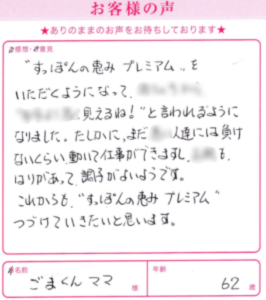 お客様の声
★ありのままのお声をお待ちしております★
ご感想・ご意見
"すっぽんの恵み プレミアム"を
いただくようになって、
見えるね!"と言われるように
なりました。たしかに、まだ 人達には負け
ないくらい動いて仕事ができますし、 も
はりがあって、調子がよいようです。
これからも、"すっぽんの恵み プレミアム"
つづけていきたいと思います。
お名前
ごまくんママ 様
年齢
62 歳